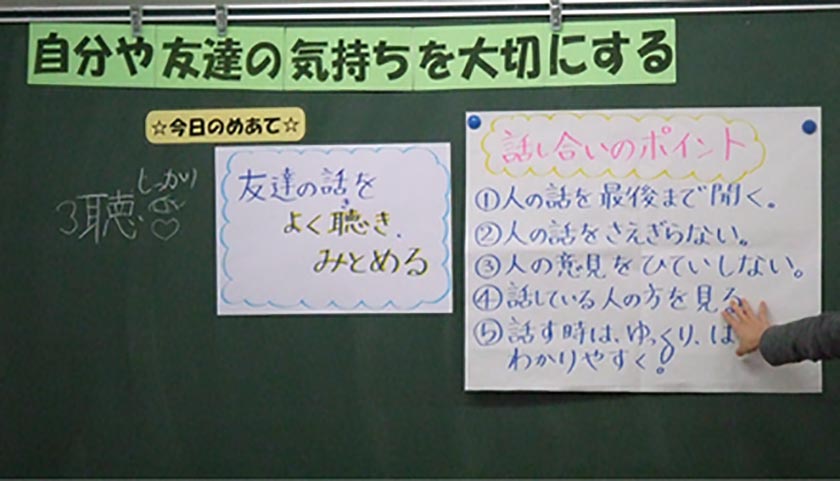 自分や友達の気持ちを大切にする
☆今日のめあて☆
しっかり
3聴
友達の話を
よく聴き、
き
みとめる
話し合いのポイント
①人の話を最後まで聞く。
②人の話をさえぎらない。
③人の意見をひていしない。
④話している人の方を見る
⑤話す時は、ゆっくり、は
わかりやすく。